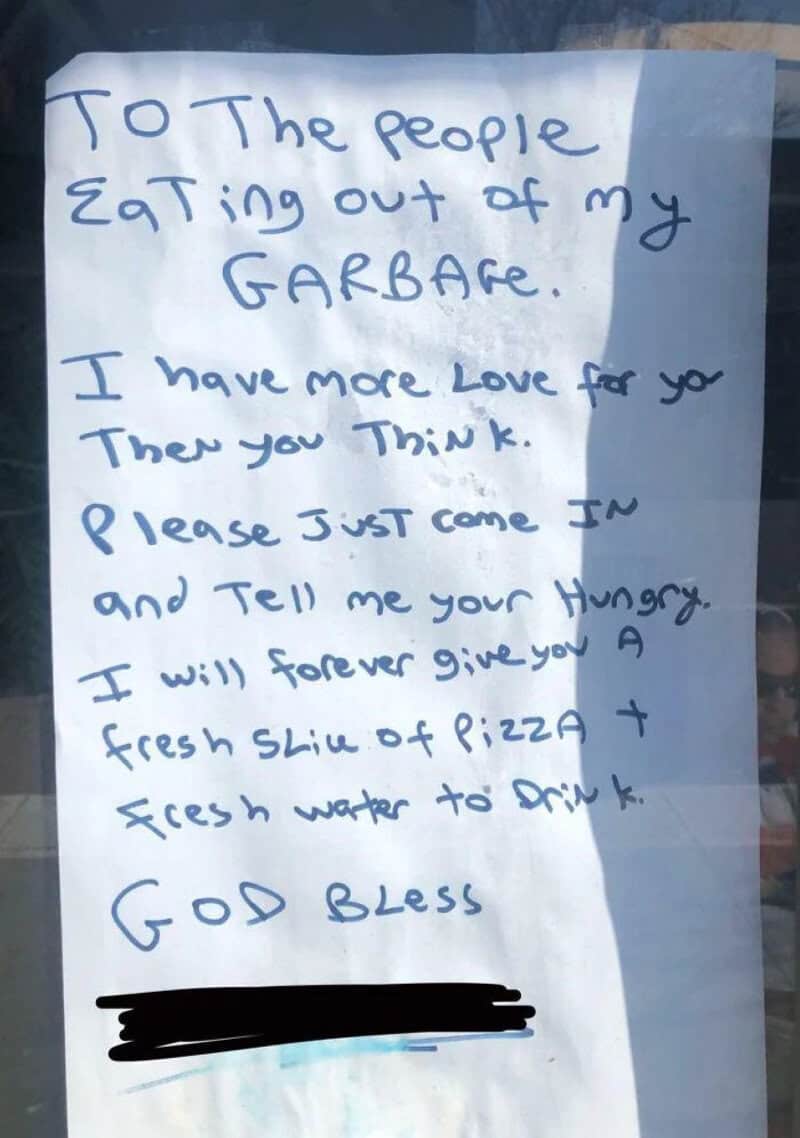 TO The people
EaTing out of my
GARBAGe.
I have more Love for you
Then you Think.
Please JusT come IN
and Tell me your Hungry.
I will forever give you A
fresh SLice of PizzA +
fresh water to Drink.
GOD BLess